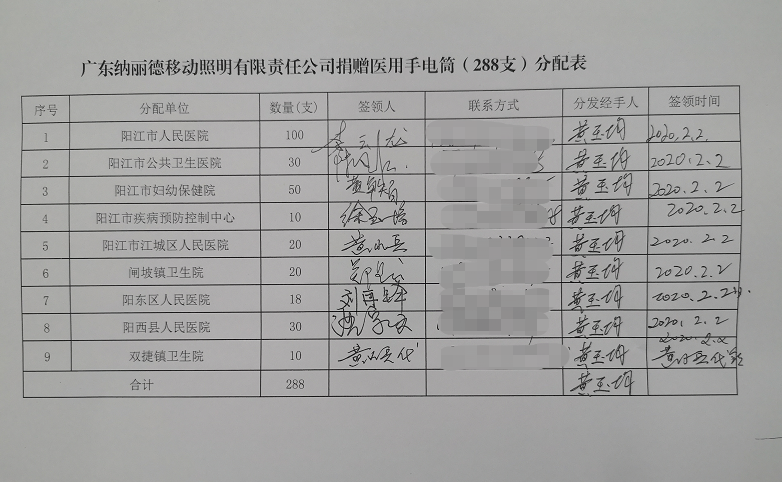 广东纳丽德移动照明有限责任公司捐赠医用手电筒（288支）分配表
序号 分配单位 数量(支) 签领人 联系方式 分发经手人 签领时间
1 阳江市人民医院 100 黄玉均 2020.2.2.
2 阳江市公共卫生医院 30 黄玉均 2020.2.2
3 阳江市妇幼保健院 50 黄玉均 2020.2.2
4 阳江市疾病预防控制中心 10 黄玉均 2020.2.2
5 阳江市江城区人民医院 20 黄玉均 2020.2.2
6 闸坡镇卫生院 20 黄玉均 2020.2.2
7 阳东区人民医院 18 黄玉均 2020.2.2
8 阳西县人民医院 30 黄玉均 2020.2.2
9 双捷镇卫生院 10 黄玉均 2020.2.2
合计 288 黄玉均